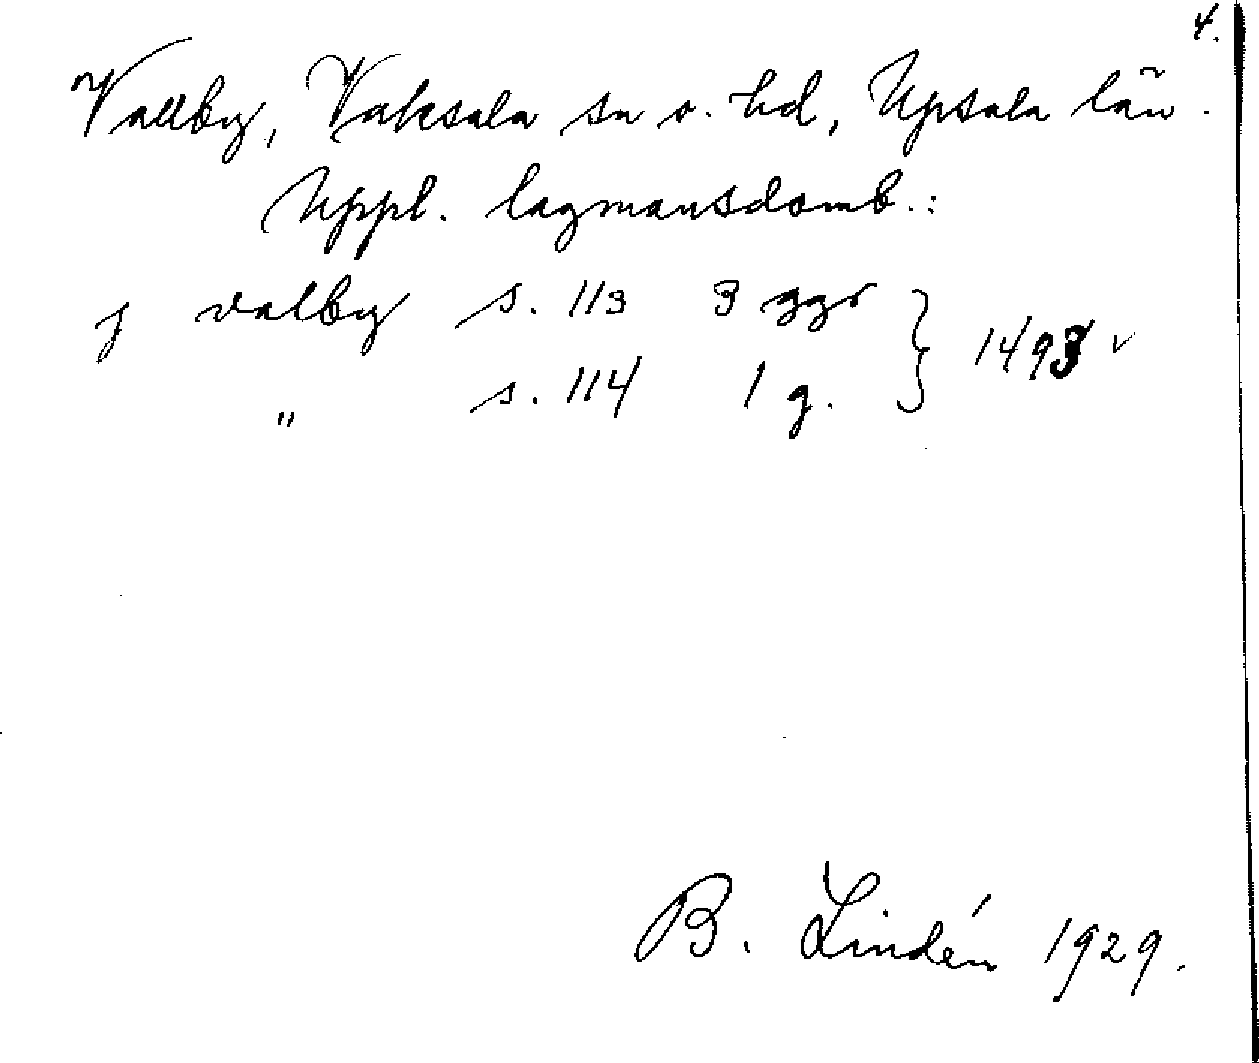 4.
Vallby, Vaksala sn o. hd, Upsala län.
Uppl. lagmansdomb.:
j valby s. 113 3 ggr } 1493 v
" s. 114 1 g.
B. Lindén 1929.